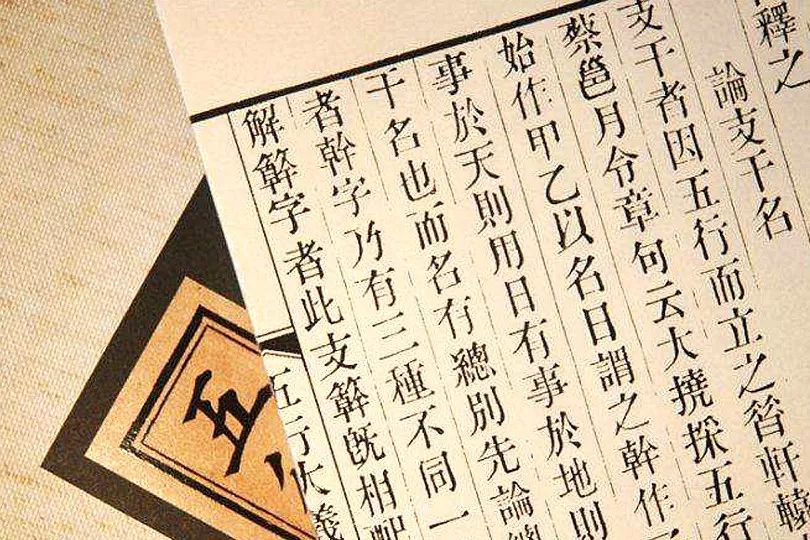 釋之
論支干名
支干者因五行而立之昔軒轅
蔡邕月令章句云大撓採五行
始作甲乙以名日謂之幹作
事於天則用日有事於地則
干名也而名有總別先論總
者幹字乃有三種不同一
解觧字者此支觧旣相配
五行大義
五